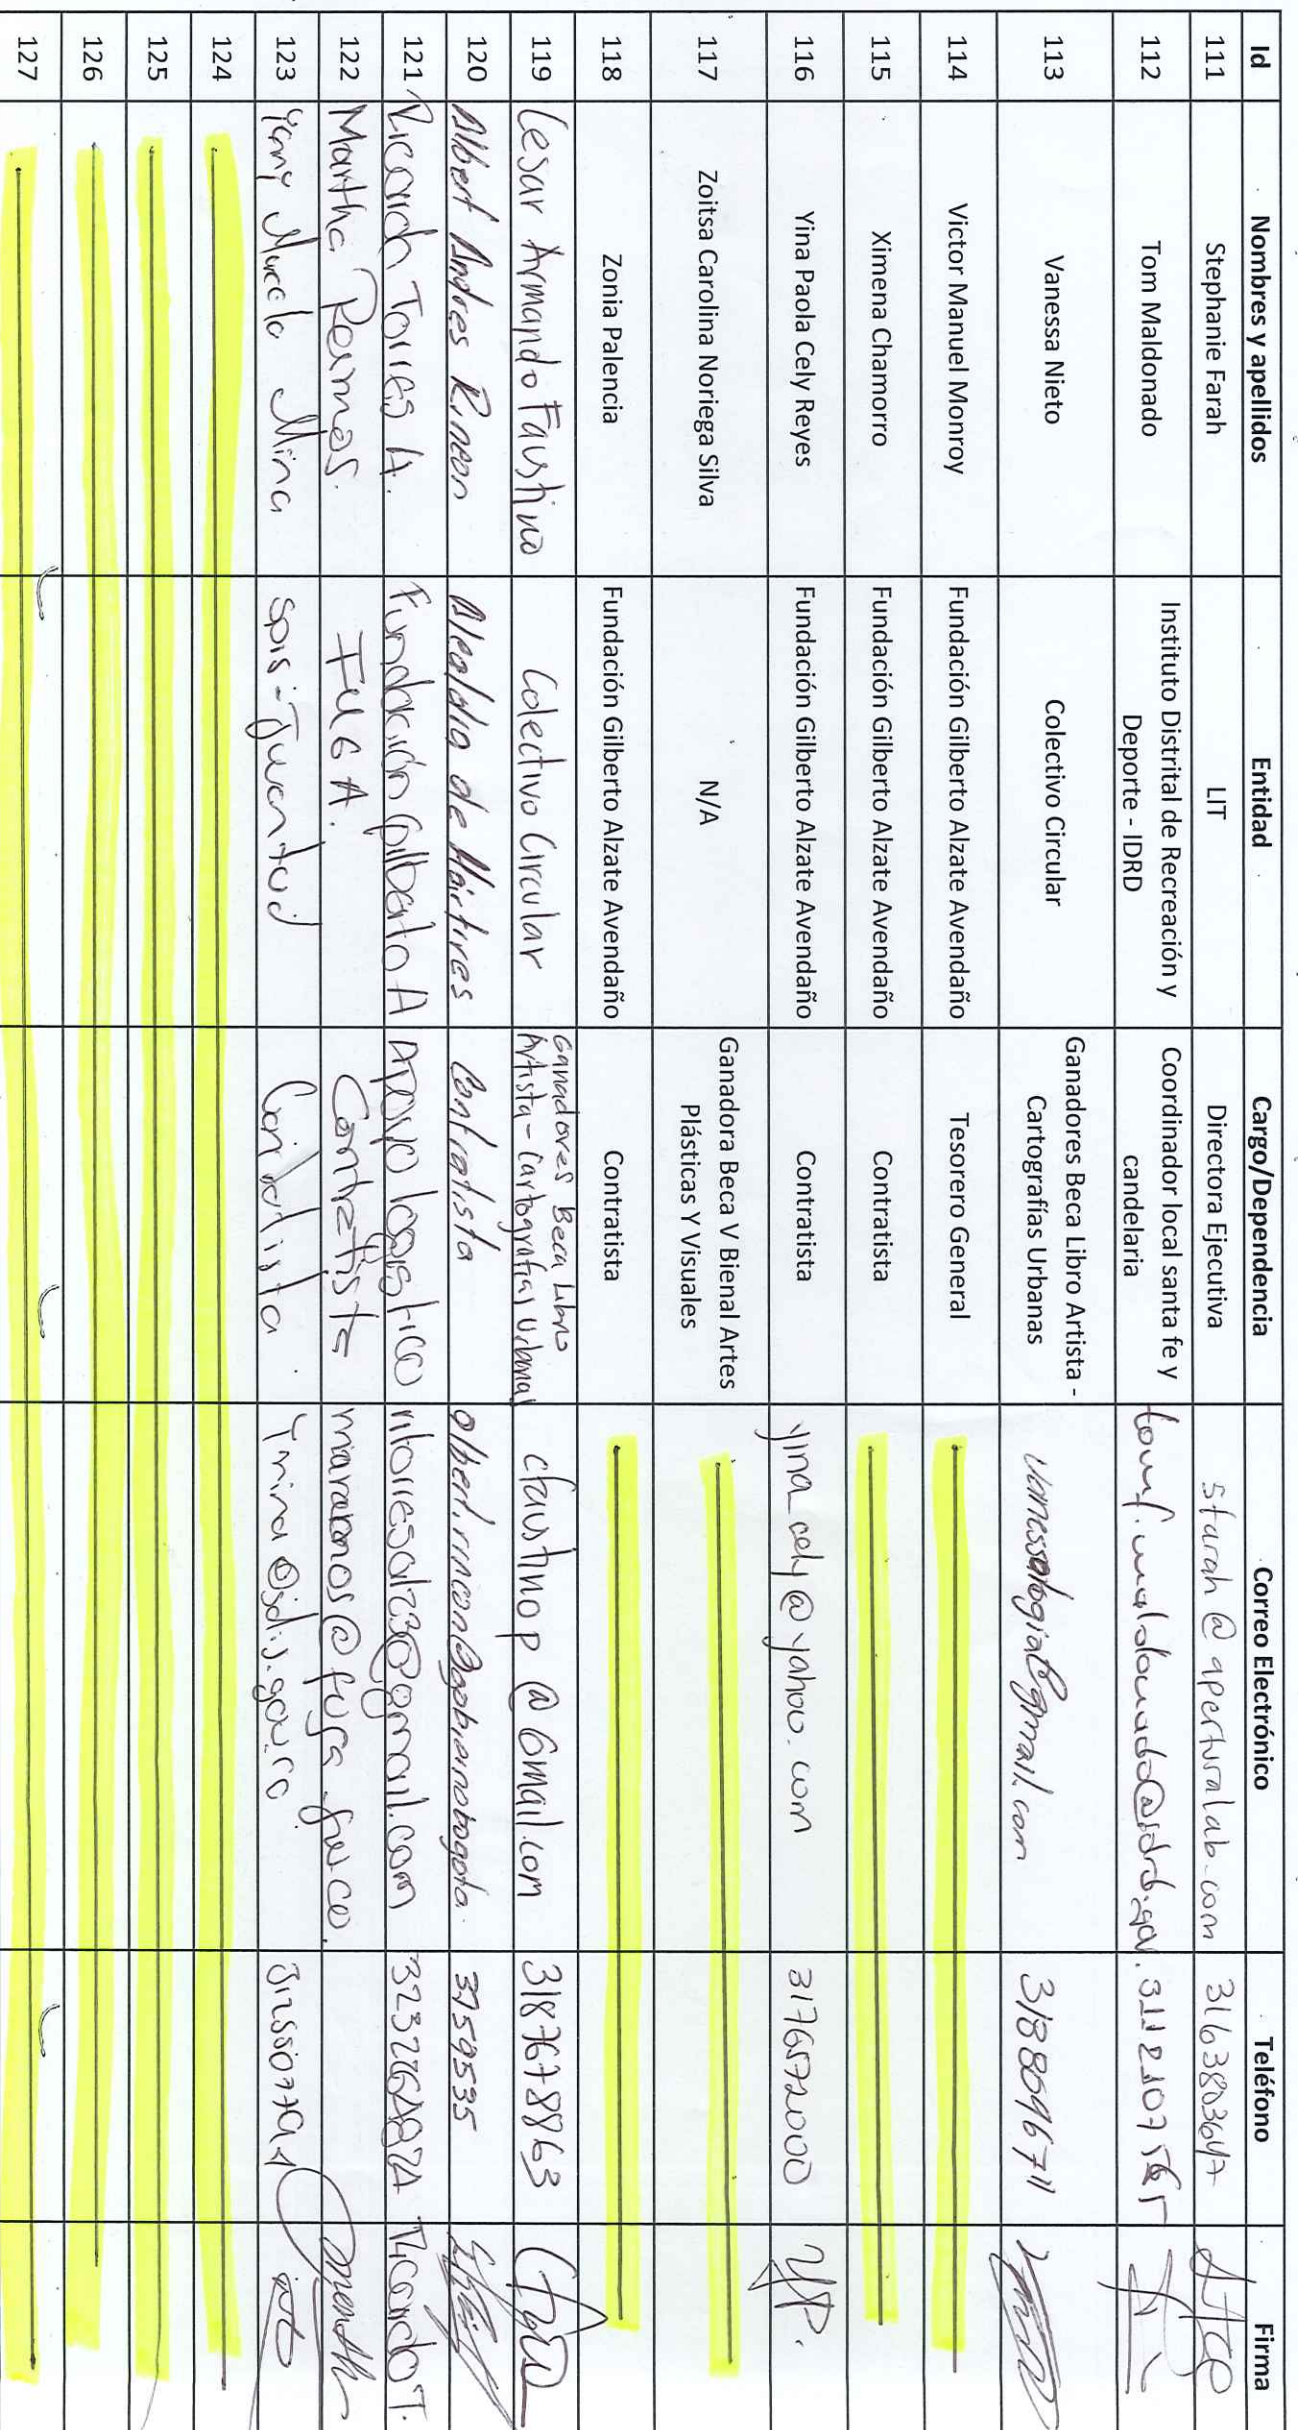 Id Nombres y apellidos Entidad Cargo/Dependencia Correo Electrónico Teléfono Firma
111 Stephanie Farah LIT Directora Ejecutiva sfarah@aperturalab.com 3163803647
112 Tom Maldonado Instituto Distrital de Recreación y Coordinador local santa fe y tomf.maldonado@idrd.gov.
Deporte - IDRD candelaria
113 Vanessa Nieto Colectivo Circular Ganadores Beca Libro Artista - vanessalogia@gmail.com 3188096711
Cartografías Urbanas
114 Victor Manuel Monroy Fundación Gilberto Alzate Avendaño Tesorero General
115 Ximena Chamorro Fundación Gilberto Alzate Avendaño Contratista
116 Yina Paola Cely Reyes Fundación Gilberto Alzate Avendaño Contratista yina_cely@yahoo.com 3176572000 YP.
117 Zoitsa Carolina Noriega Silva N/A Ganadora Beca V Bienal Artes
Plásticas Y Visuales
118 Zonia Palencia Fundación Gilberto Alzate Avendaño Contratista
119 Cesar Armando Faustino Colectivo Circular Ganadores Beca Libro
Artista - Cartografias Urbanas cfaustinop@Gmail.com 3187678863
120 Albert Andres Rincon Alcaldia de Mártires Contratista albert.rincon@gobiernobogota. 3759535
121 Ricardo Torres A. Fundación Gilberto A Apoyo logistico Ricardo T.
122 Martha Ramos. FUGA. Contratista maramos@fuga.gov.co.
123 Yeny Marcela Mina Sdis - Juventud Contratista. Ymina@sdis.gov.co
124
125
126
127